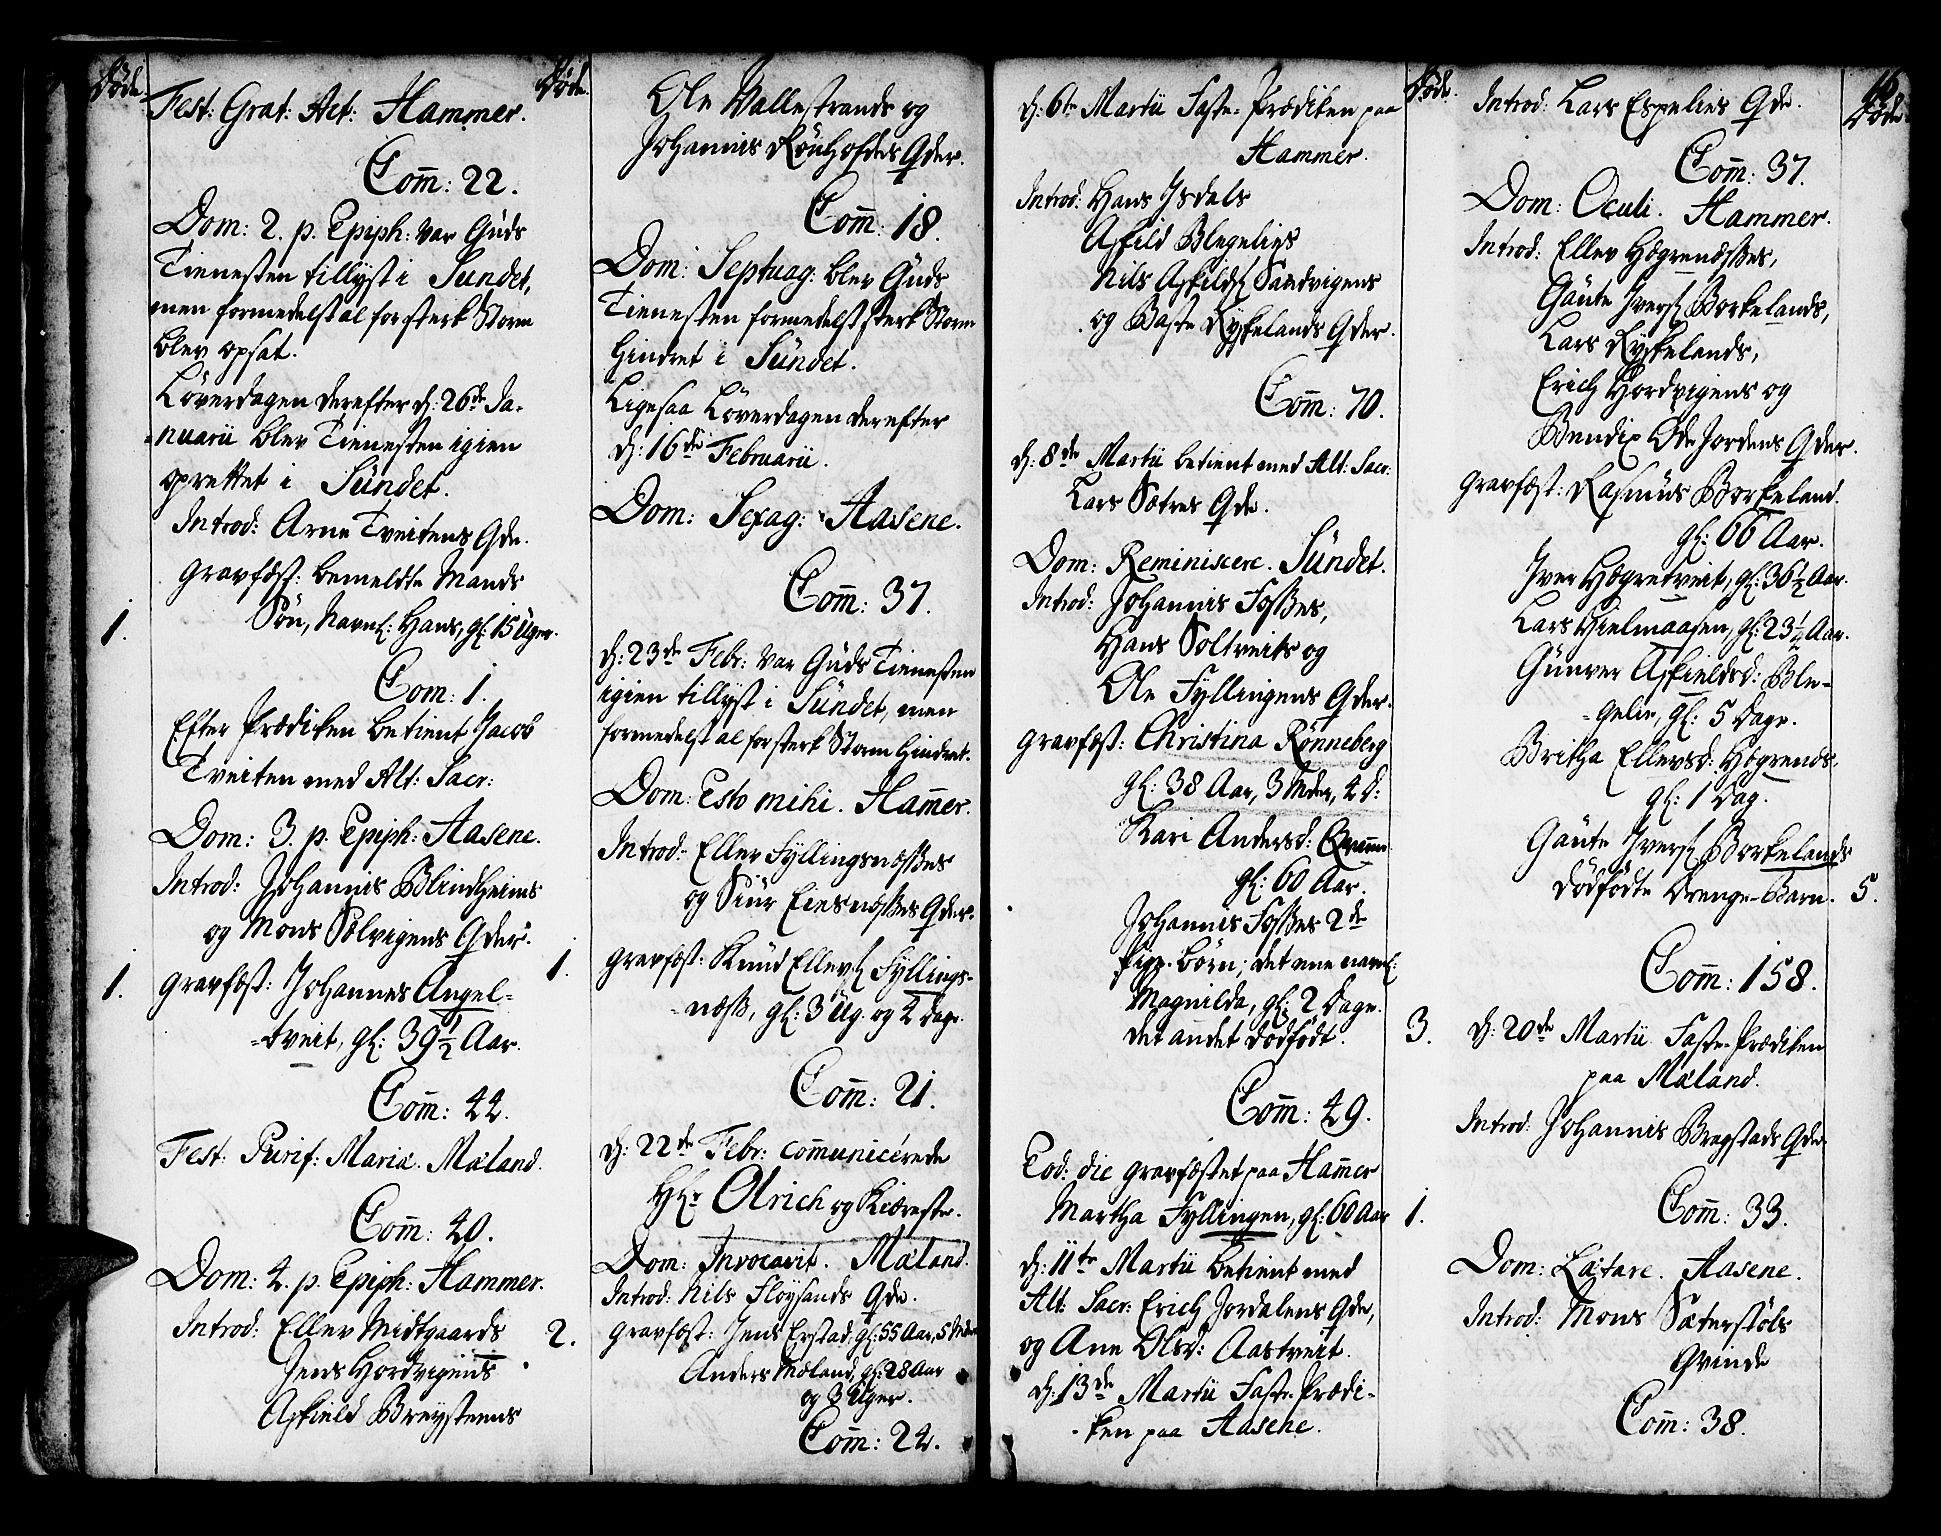 Døde.
Fest: Grat: Act: Hammer.
Com̄: 22.
Dom: 2. p. Epiph: var Guds
Tienesten tillyst i Sundet,
men formedelst al for sterk Storm
blev opsat.
Löverdagen derefter d: 26de Ja-
nuarii blev Tienesten igien
oprettet i Sundet.
Introd: Arne Tveitens Qde.
Gravfæst: bemeldte Mands
1. Sön, Navnl: Hans, gl: 15 Uger.
Com: 1.
Efter Prædiken betient Jacob
Tveiten med Alt: Sacr:
Dom: 3. p. Epiph: Aasene.
Introd: Johannis Blindheims
og Mons Sölvigens Qder.
1. Gravfæst: Johannes Angel=
=tveit, gl: 39½ Aar.
Com̄: 44.
Fest: Purif: Mariæ. Mæland.
Com̄: 40.
Dom: 4. p. Epiph: Hammer.
Introd: Ellev Midtgaards
Jens Hordvigens
Askield Breystenns
Døde.
Ole Vallestrands og
Johannis Rönhofdes Qder.
Com̄: 18.
Dom: Septuag: blev Guds
Tienesten formedelst sterk Storm
hindret i Sundet.
Ligesaa Löverdagen derefter
d: 16de Februarii.
Dom: Sexag: Aasene.
Com̄: 37.
d: 23de Febr: var Guds Tienesten
igien tillyst i Sundet, men
formedelst al for sterk Storm hindret.
Dom: Esto mihi. Ham̄er.
Introd: Ellev Fyllingsnæsses
og Siur Eiesnæsses Qder.
1. Gravfæst: Knud Ellevs: Fyllings-
næss, gl: 3 Ug. og 4 Dage.
Com̄: 21.
d: 22de Febr: com̄unicerede
Hr: Olrich og Kiæreste.
Dom: Invocavit. Mæland.
Introd: Nils Flöysands Qde.
2. Gravfæst: Jens Erstad, gl: 55 Aar, 5 Mdr
Anders Mæland, gl: 28 Aar
og 3 Uger.
Com̄: 24.
d: 6te Martii Faste-Prædiken paa
Hammer.
Introd: Hans Isdals
Askild Blegelies
Nils Askilds: Sandvigens
og Baste Ryskelands Qder.
Com̄: 70.
d: 8de Martii betient med Alt: Sacr:
Lars Sætres Qde.
Dom: Reminiscere. Sundet.
Introd: Johannis Fosses,
Hans Soltveits og
Ole Fyllingens Qder.
Gravfæst: Christina Rönneberg
gl: 38 Aar, 3 Mder, 4 D:
Kari Andersd:
gl: 60 Aar.
Johannis Fosses 2de
Pige-börn; det ene navnl:
Magnilda, gl: 2 Dage.
det andet dödfödt.
Døde.
3.
Com̄: 49.
Eod: die gravfæstet paa Ham̄er
Martha Fyllingen, gl: 60 Aar 1.
d: 11te Martii betient med
Alt: Sacr: Erich Jordalens Qde,
og Ane Olsd: Aastveit.
d: 13de Martii Faste-Prædi-
ken paa Aasene.
16
Døde
Introd: Lars Espelies Qde.
Com̄: 37.
Dom: Oculi. Hammer.
Introd: Ellev Högrendsses,
Gaute Ivers: Borkelands,
Lars Ryskelands,
Erich Hordvigens og
Bendix Öde Jordens Qder.
Gravfæst: Rasmus Borkeland.
gl: 66 Aar.
Iver Hogretveit, gl: 36½ Aar.
Lars Hielmaasen, gl: 23½ Aar.
Gunver Askieldsd: Ble-
=gelie, gl: 5 Dage.
Britha Ellevsd: Högrends,
gl: 1 Dag.
Gaute Ivers: Borkelands
dödfödte Drenge-Barn. 5.
Com̄: 158.
d: 20de Martii Faste-Prædiken
paa Mæland.
Introd: Johannis Bregstads Qde
Com̄: 33.
Dom: Lætare. Aasene.
Introd: Mons Sæterstöls
Qvinde
Com̄: 38.